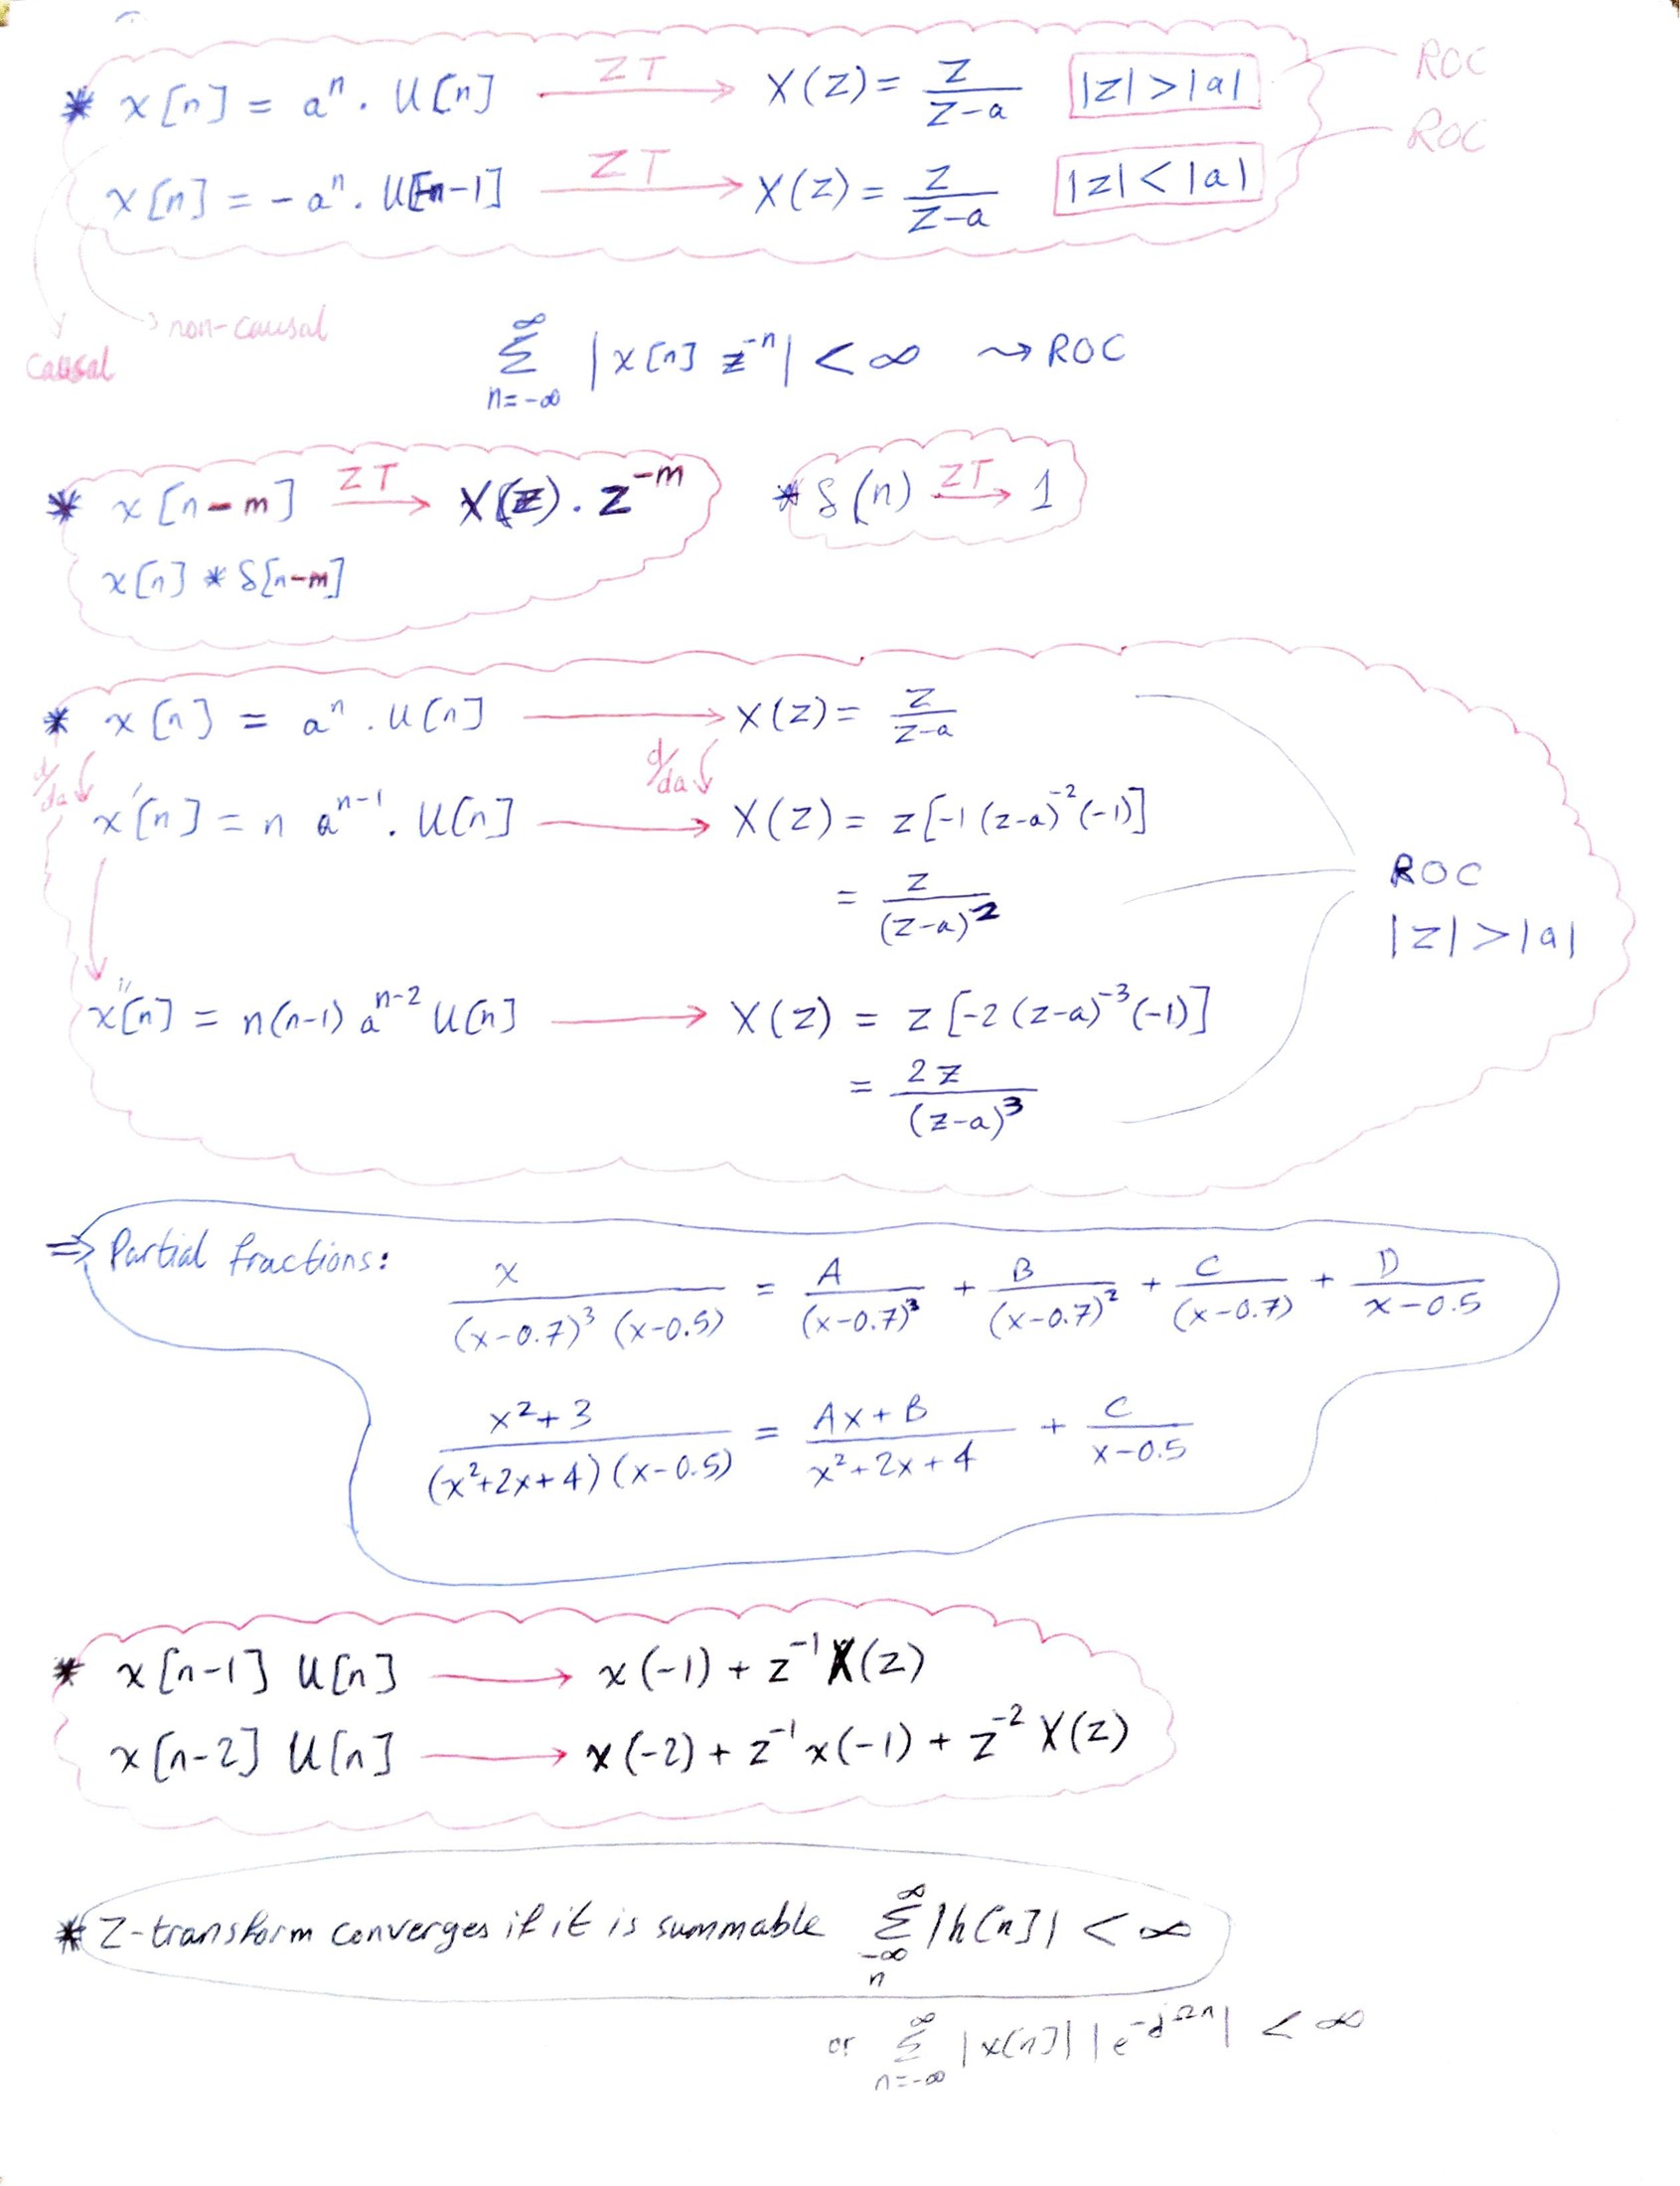 * x[n] = aⁿ . U[n] ZT → X(z) = z/(z-a) |z| > |a| ROC
x[n] = -aⁿ . U[-n-1] ZT → X(z) = z/(z-a) |z| < |a| ROC
causal
non-causal
∞ Σ n=-∞ |x[n] z⁻ⁿ| < ∞ ⇝ ROC
* x[n-m] ZT → X(z) . z⁻ᵐ
x[n] * δ[n-m]
* δ(n) ZT → 1
* x[n] = aⁿ . U[n] → X(z) = z/(z-a)
d/da ↓ d/da ↓
x'[n] = n aⁿ⁻¹ . U[n] → X(z) = z[-1 (z-a)⁻² (-1)]
= z/(z-a)²
ROC
|z| > |a|
x''[n] = n(n-1) aⁿ⁻² U[n] → X(z) = z [-2 (z-a)⁻³ (-1)]
= 2z/(z-a)³
⇒ Partial fractions:
x/((x-0.7)³ (x-0.5)) = A/(x-0.7)³ + B/(x-0.7)² + C/(x-0.7) + D/(x-0.5)
(x²+3)/((x²+2x+4)(x-0.5)) = (Ax+B)/(x²+2x+4) + C/(x-0.5)
* x[n-1] U[n] → x(-1) + z⁻¹ X(z)
x[n-2] U[n] → x(-2) + z⁻¹ x(-1) + z⁻² X(z)
* Z-transform converges if it is summable ∞ Σ -∞ n |h[n]| < ∞
or ∞ Σ n=-∞ |x[n]| |e^(-jΩn)| < ∞